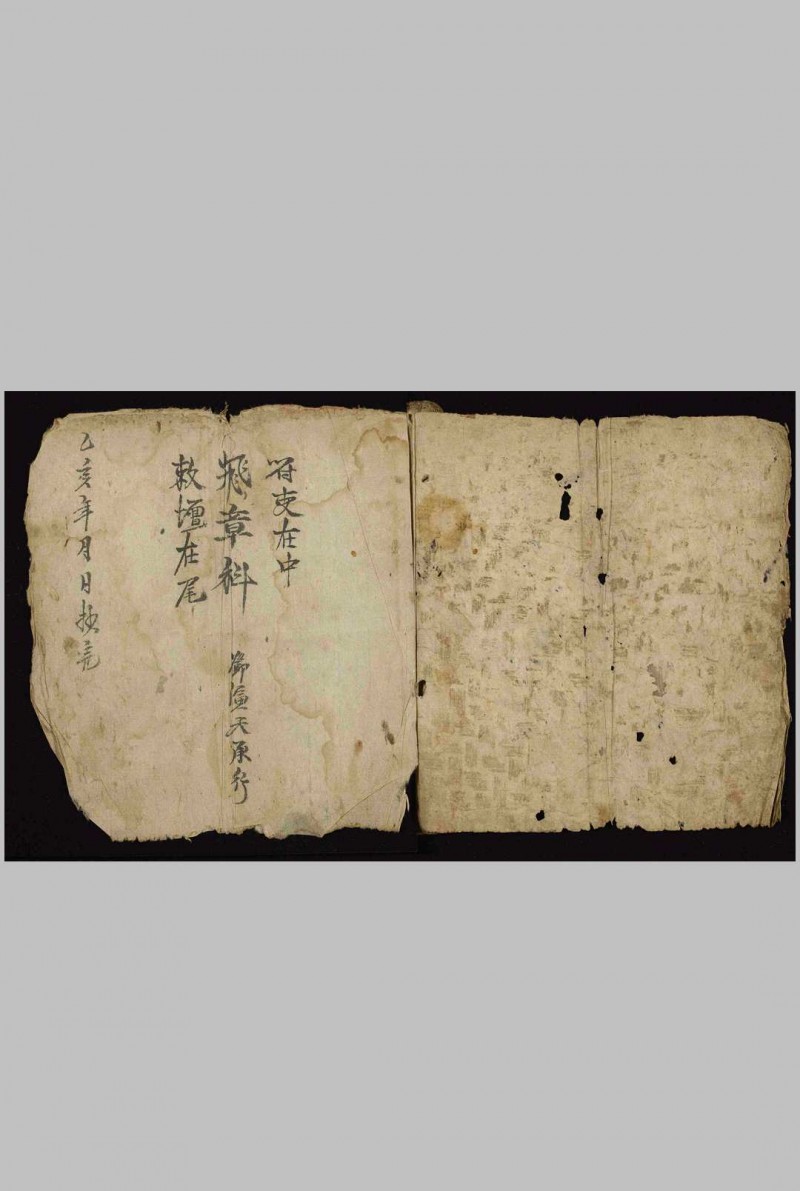 符吏在中
飛章科
敕壇在尾
天承行
乙亥年月日抄完